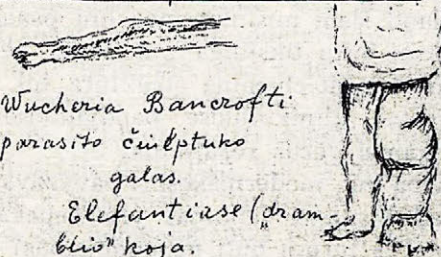 Wucheria Bancrofti
parasito čiulptuko
galas.
Elefantiase („dram-
blio" koja.